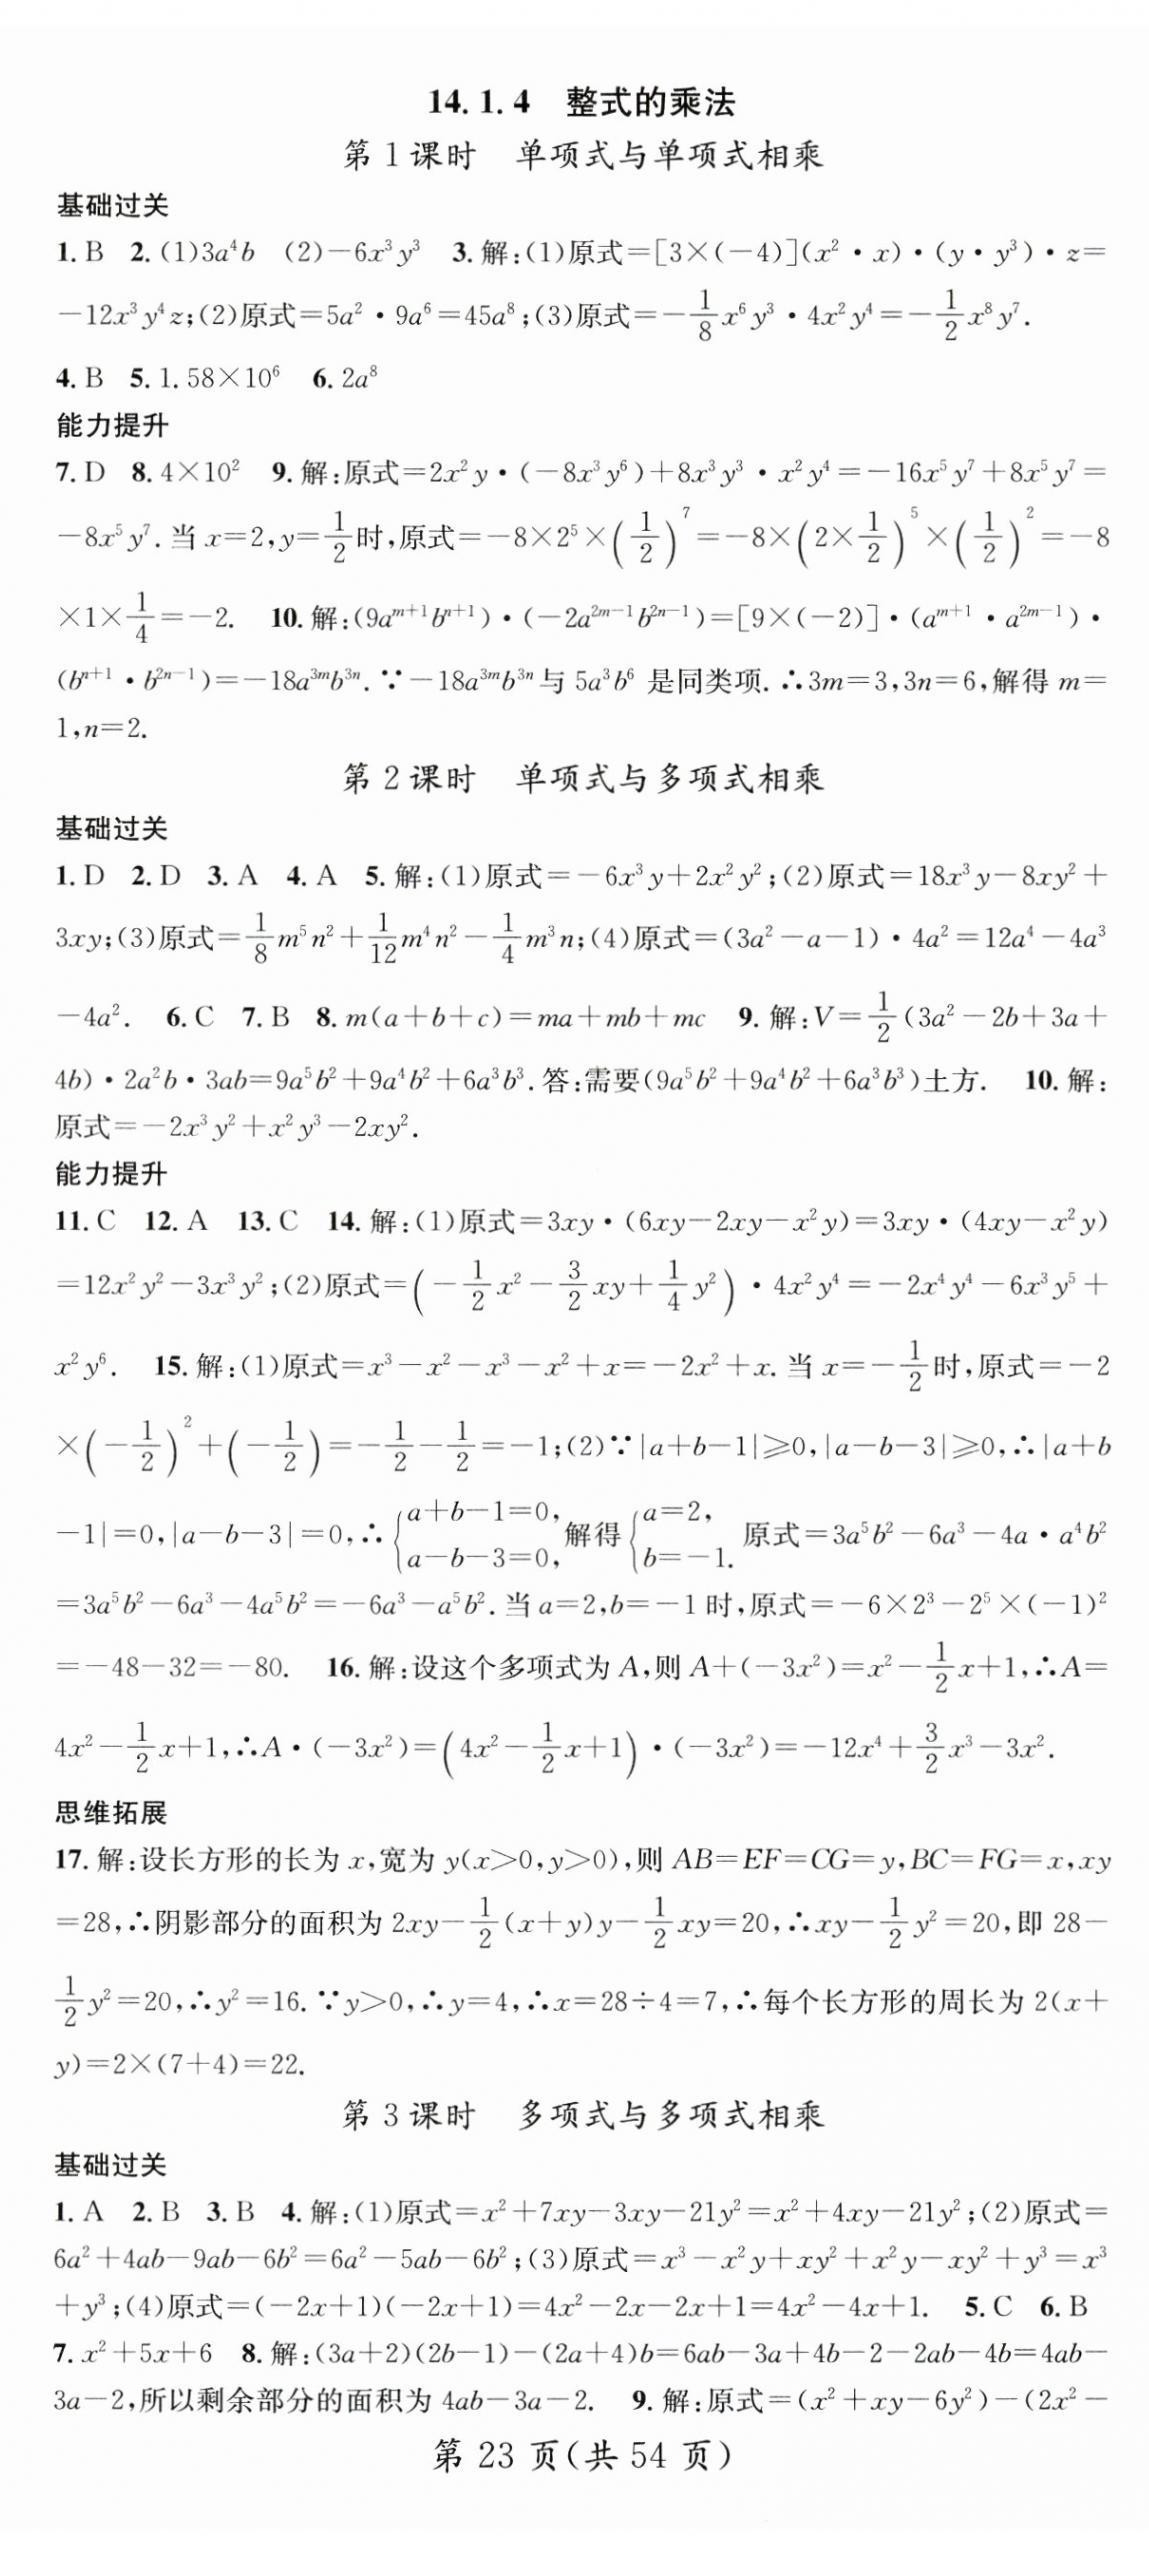 14.1.4　整式的乘法
第1课时　单项式与单项式相乘
基础过关
1. B　2. (1)3a⁴b　(2)－6x³y³　3. 解:(1)原式＝[3×(－4)](x²・x)・(y・y³)・z＝
－12x³y⁴z;(2)原式＝5a²・9a⁶＝45a⁸;(3)原式＝－1/8x⁶y³・4x²y⁴＝－1/2x⁸y⁷.
4. B　5. 1.58×10⁶　6. 2a⁸
能力提升
7. D　8. 4×10²　9. 解:原式＝2x²y・(－8x³y⁶)＋8x³y³・x²y⁴＝－16x⁵y⁷＋8x⁵y⁷＝
－8x⁵y⁷. 当 x＝2,y＝1/2时,原式＝－8×2⁵×(1/2)⁷＝－8×(2×1/2)⁵×(1/2)²＝－8
×1×1/4＝－2.　10. 解:(9aᵐ⁺¹bⁿ⁺¹)・(－2a²ᵐ⁻¹b²ⁿ⁻¹)＝[9×(－2)]・(aᵐ⁺¹・a²ᵐ⁻¹)・
(bⁿ⁺¹・b²ⁿ⁻¹)＝－18a³ᵐb³ⁿ. ∵－18a³ᵐb³ⁿ与 5a³b⁶ 是同类项. ∴3m＝3,3n＝6,解得 m＝
1,n＝2.
第2课时　单项式与多项式相乘
基础过关
1. D　2. D　3. A　4. A　5. 解:(1)原式＝－6x³y＋2x²y²;(2)原式＝18x³y－8xy²＋
3xy;(3)原式＝1/8m⁵n²＋1/12m⁴n²－1/4m³n;(4)原式＝(3a²－a－1)・4a²＝12a⁴－4a³
－4a².　6. C　7. B　8. m(a＋b＋c)＝ma＋mb＋mc　9. 解:V＝1/2(3a²－2b＋3a＋
4b)・2a²b・3ab＝9a⁵b²＋9a⁴b²＋6a³b³. 答:需要(9a⁵b²＋9a⁴b²＋6a³b³)土方.　10. 解:
原式＝－2x³y²＋x²y³－2xy².
能力提升
11. C　12. A　13. C　14. 解:(1)原式＝3xy・(6xy－2xy－x²y)＝3xy・(4xy－x²y)
＝12x²y²－3x³y²;(2)原式＝(－1/2x²－3/2xy＋1/4y²)・4x²y⁴＝－2x⁴y⁴－6x³y⁵＋
x²y⁶.　15. 解:(1)原式＝x³－x²－x³－x²＋x＝－2x²＋x. 当 x＝－1/2时,原式＝－2
×(－1/2)²＋(－1/2)＝－1/2－1/2＝－1;(2)∵|a＋b－1|≥0,|a－b－3|≥0,∴|a＋b
－1|＝0,|a－b－3|＝0,∴{a＋b－1＝0, a－b－3＝0,解得{a＝2, b＝－1. 原式＝3a⁵b²－6a³－4a・a⁴b²
＝3a⁵b²－6a³－4a⁵b²＝－6a³－a⁵b². 当 a＝2,b＝－1 时,原式＝－6×2³－2⁵×(－1)²
＝－48－32＝－80.　16. 解:设这个多项式为 A,则 A＋(－3x²)＝x²－1/2x＋1,∴A＝
4x²－1/2x＋1,∴A・(－3x²)＝(4x²－1/2x＋1)・(－3x²)＝－12x⁴＋3/2x³－3x².
思维拓展
17. 解:设长方形的长为 x,宽为 y(x>0,y>0),则 AB＝EF＝CG＝y,BC＝FG＝x,xy
＝28,∴阴影部分的面积为 2xy－1/2(x＋y)y－1/2xy＝20,∴xy－1/2y²＝20,即 28－
1/2y²＝20,∴y²＝16. ∵y>0,∴y＝4,∴x＝28÷4＝7,∴每个长方形的周长为 2(x＋
y)＝2×(7＋4)＝22.
第3课时　多项式与多项式相乘
基础过关
1. A　2. B　3. B　4. 解:(1)原式＝x²＋7xy－3xy－21y²＝x²＋4xy－21y²;(2)原式＝
6a²＋4ab－9ab－6b²＝6a²－5ab－6b²;(3)原式＝x³－x²y＋xy²＋x²y－xy²＋y³＝x³
＋y³;(4)原式＝(－2x＋1)(－2x＋1)＝4x²－2x－2x＋1＝4x²－4x＋1.　5. C　6. B
7. x²＋5x＋6　8. 解:(3a＋2)(2b－1)－(2a＋4)b＝6ab－3a＋4b－2－2ab－4b＝4ab－
3a－2,所以剩余部分的面积为 4ab－3a－2.　9. 解:原式＝(x²＋xy－6y²)－(2x²－
第 23 页(共 54 页)